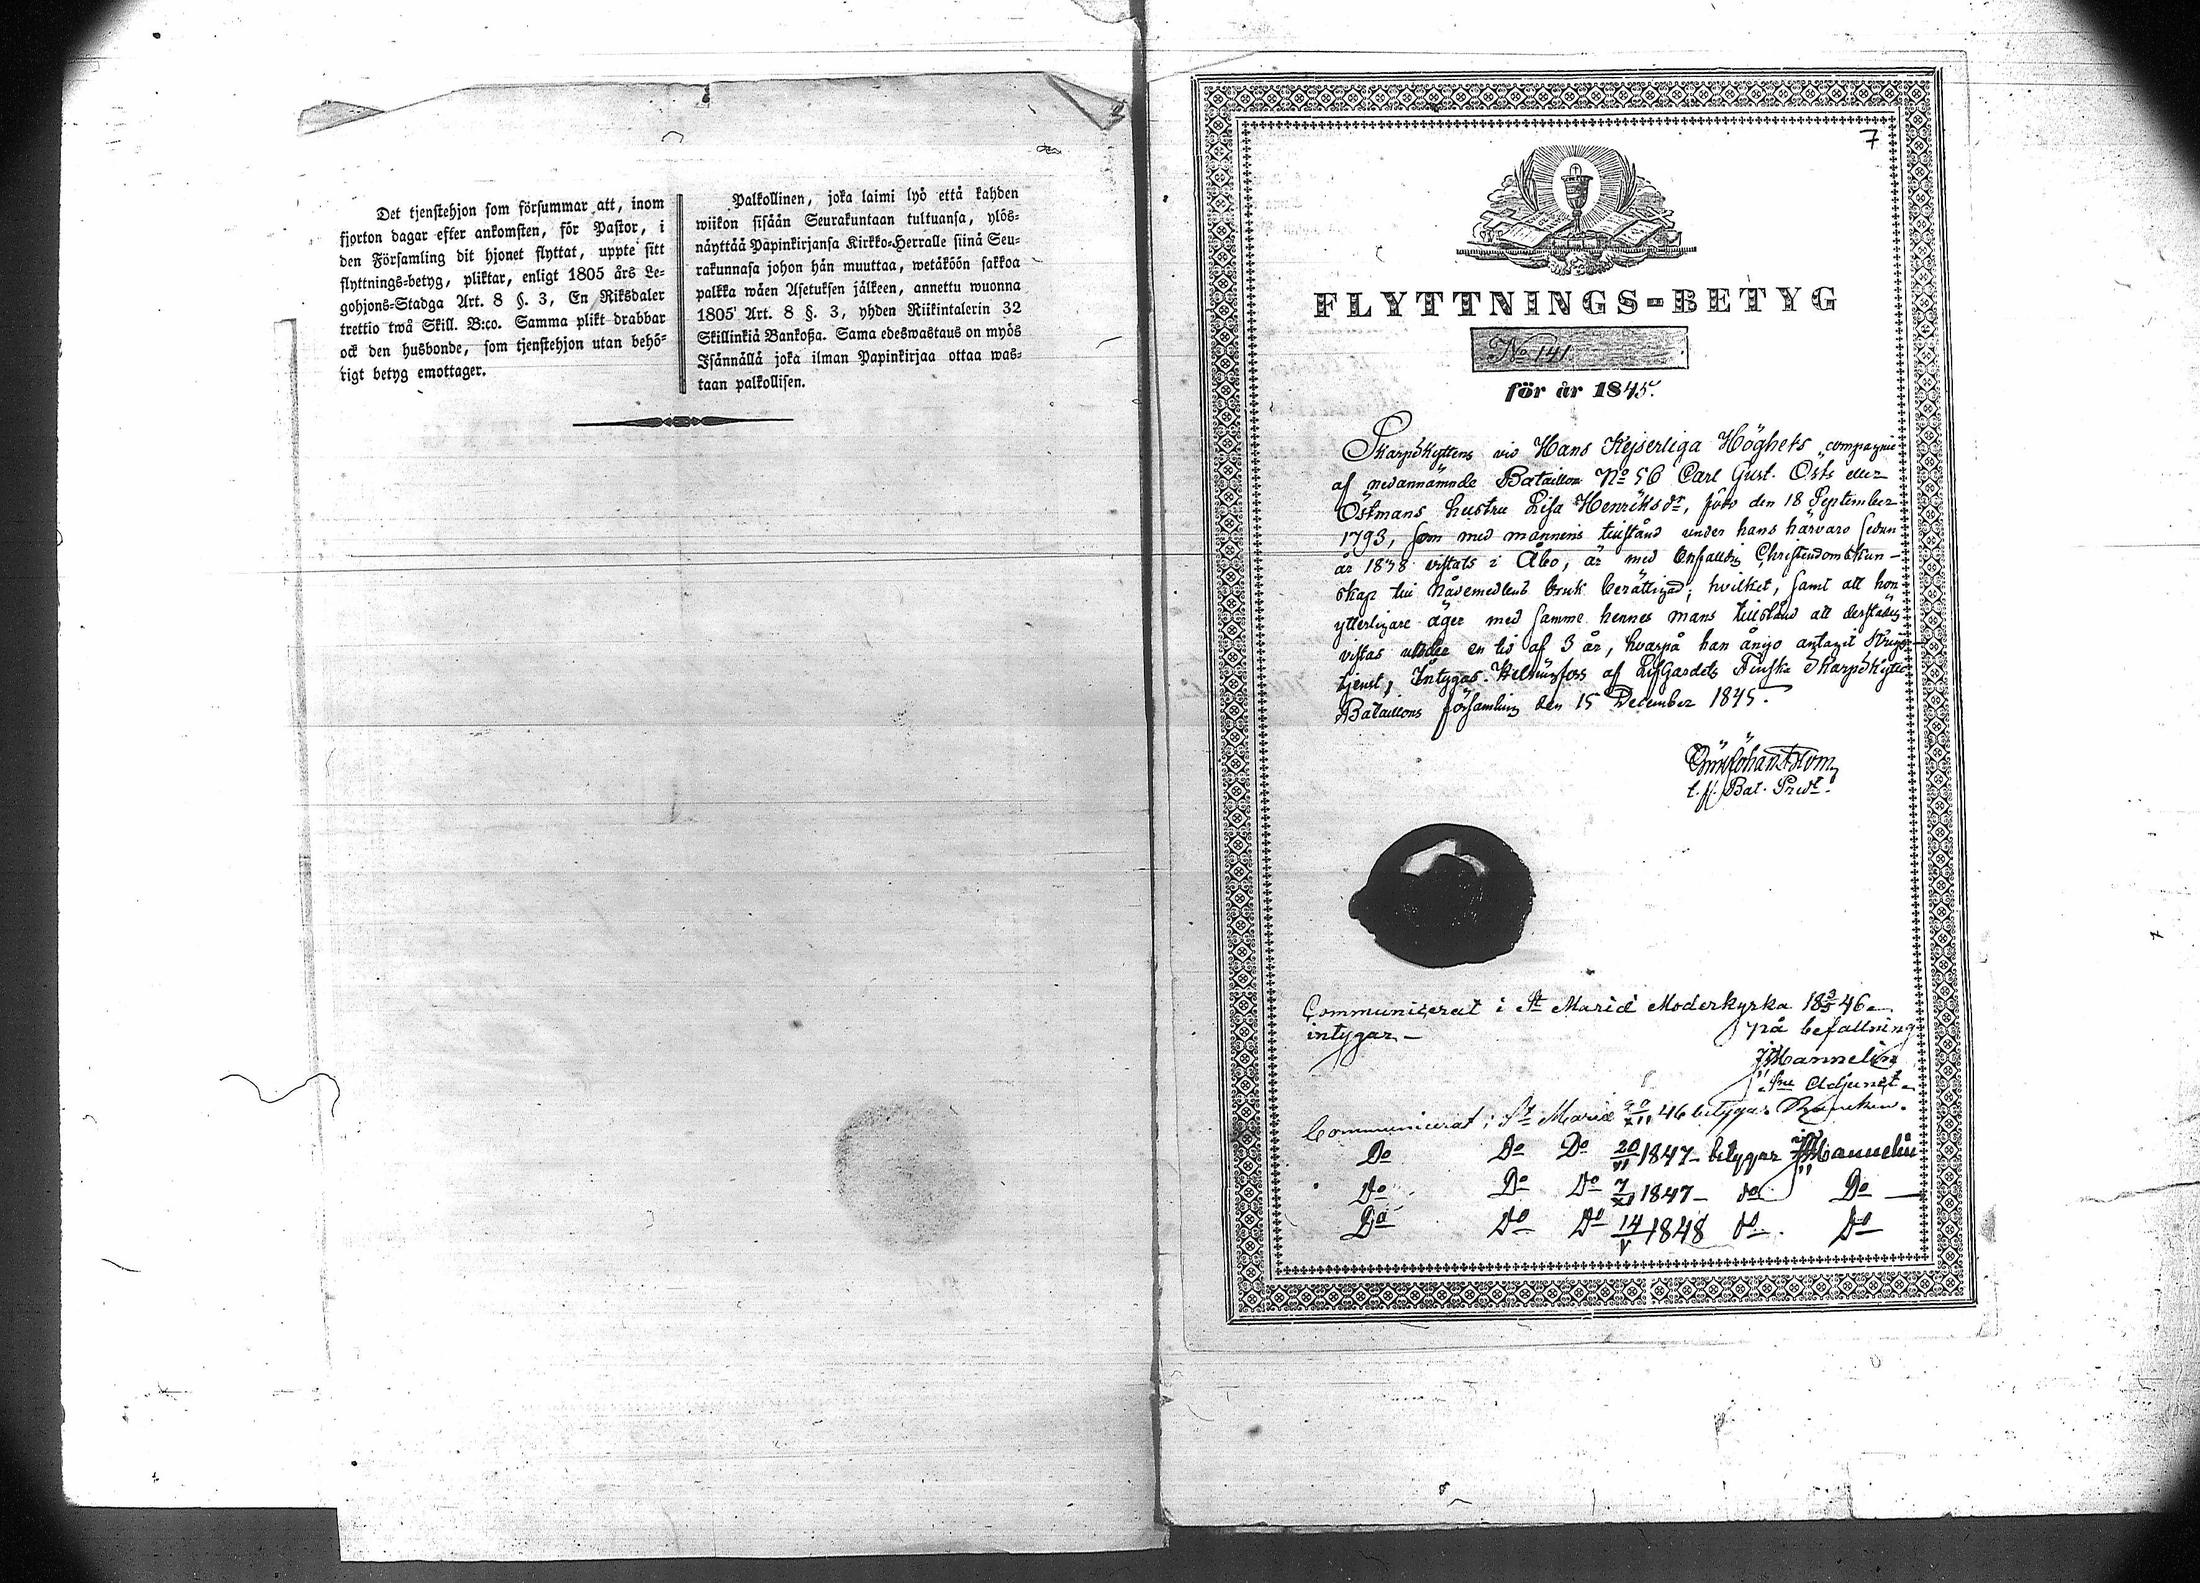 Det tjenstehjon som försummar att, inom
fjorton dagar efter ankomsten, för Pastor, i
den Församling dit hjonet flyttat, uppte sitt
flyttnings-betyg, pliktar, enligt 1805 års Le-
gohjons-Stadga Art. 8 §. 3, En Riksdaler
trettio twå Skill. B:co. Samma plikt drabbar
ock den husbonde, som tjenstehjon utan behö-
rigt betyg emottager.
Palkollinen, joka laimi lyö että kahden
wiikon sisään Seurakuntaan tultuansa, ylös-
näyttää Papinkirjansa Kirkko-Herralle siinä Seu-
rakunnasa johon hän muuttaa, wetäköön sakkoa
palkka wäen Asetuksen jälkeen, annettu wuonna
1805 Art. 8 §. 3, yhden Riikintalerin 32
Skillinkiä Bankoßa. Sama edeswastaus on myös
Isännällä joka ilman Papinkirjaa ottaa was-
taan palkollisen.
7
FLYTTNINGS-BETYG
No 141.
för år 1845.
Skarpskyttens vid Hans Kejserliga Höghets compagnie
af nedannämnde Bataillon No 56 Carl Gust. Östs eller
Östmans hustru Lisa Henriksdr, född den 18 September
1793, som med mannens tillstånd under hans härvaro sedan
år 1838 vistats i Åbo, är med Enfaldig Christendomskun-
skap till Nådemedlens bruk berättigad; hvilket, samt att hon
ytterligare äger med samme hennes mans tillstånd att derstädes
vistas under en tid af 3 år, hvarpå han ånyo antagit Krigs-
tjenst, Intygas. Helsingfors af LifGardets Finska Skarpskytte
Bataillons församling den 15 December 1845.
t. f. Bat. Predt.
Communicerat i St Mariæ Moderkyrka 18 3/5 46
intygar
på befallning
JHannelin
Adjunct
Communicerat i St Mariæ 20/XII 46 betygar
Do Do Do 20/VI 1847 betygar JHannelin
Do Do Do 7/XI 1847 do Do
Do Do Do 14/V 1848 do. Do